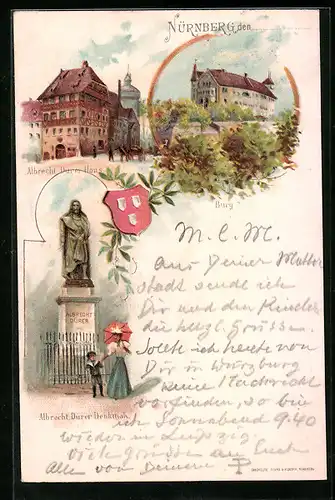 NÜRNBERG, den
Albrecht Dürer Haus
Burg
ALBRECHT
DÜRER
Albrecht Dürer Denkmal.
M. l. M.
Aus Deiner Mutter
stadt sende ich
Dir und den Kindern
die herzl. Grüsse.
Sollte ich heute von
Dir in Würzburg
keine Nachricht
vorfinden, so bin
ich Sonnabend 9.40
wieder in Leipzig
Viele Grüsse an Euch
Alle von Deinem